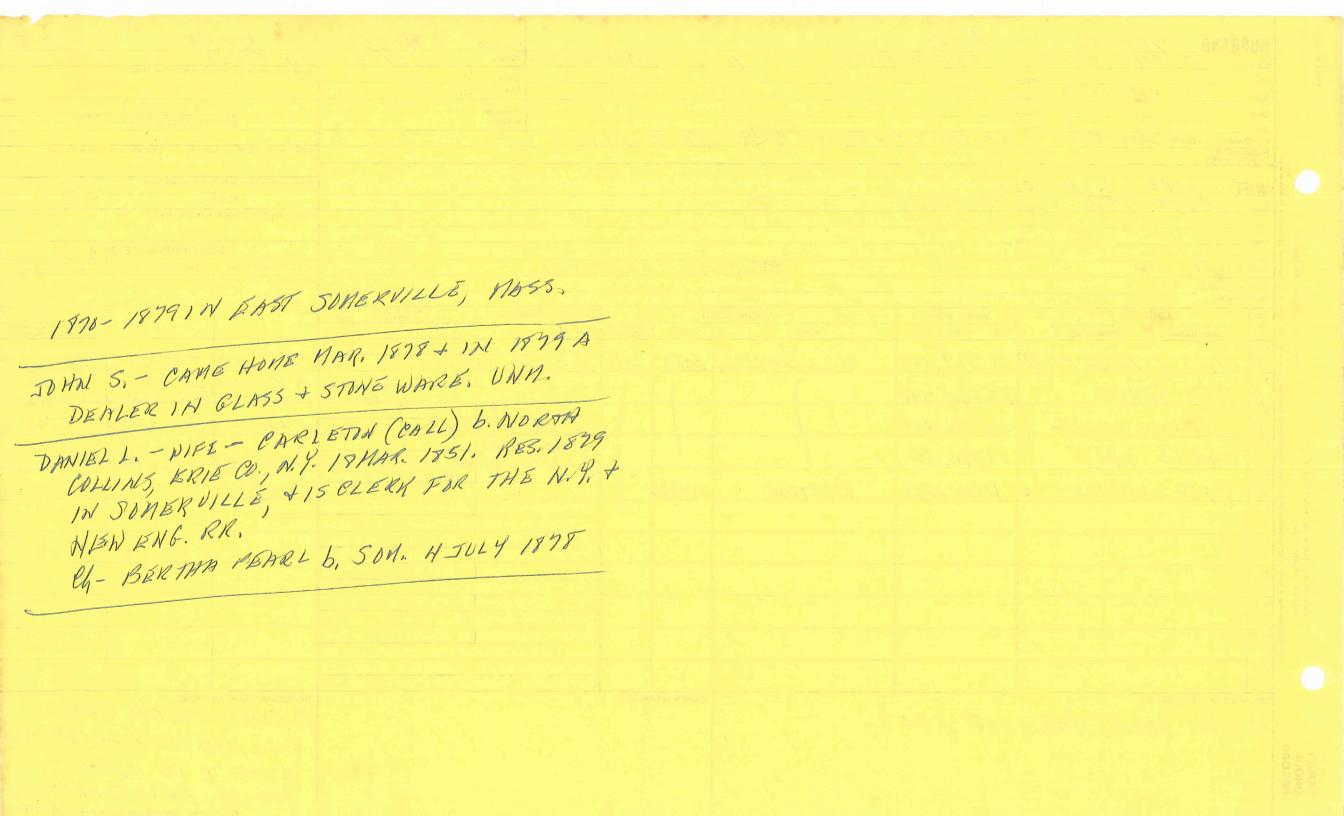 1870- 1879 IN EAST SOMERVILLE, MASS.
JOHN S. - CAME HOME MAR. 1878 + IN 1879 A
DEALER IN GLASS + STONE WARE. UNM.
DANIEL L. - WIFE - CARLETON (CALL) b. NORTH
COLLINS, ERIE CO., N.Y. 18 MAR. 1851. RES. 1879
IN SOMERVILLE, + IS CLERK FOR THE N.Y. +
NEW ENG. RR.
Ch- BERTHA PEARL b. SOM. 4 JULY 1878